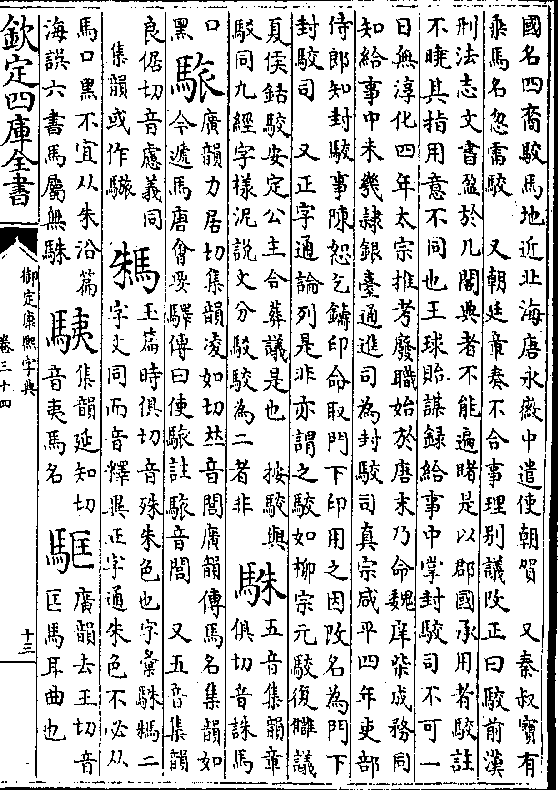 國名四裔駮馬地近北海唐永徽中遣使朝貢　又秦叔寶有
乘馬名忽雷駮　又朝廷章奏不合事理别議改正曰駮前漢
刑法志文書盈於几閣典者不能遍睹是以郡國承用者駮註
不曉其指用意不同也王球貽謀録給事中掌封駮司不可一
日無淳化四年太宗推考廢職始於唐末乃命魏庠柴成務同
知給事中未幾隷銀臺通進司為封駮司真宗咸平四年吏部
侍郎知封駮事陳恕乞鑄印命取門下印用之因改名為門下
封駮司　又正字通論列是非亦謂之駮如柳宗元駮復讎議
夏侯銛駮安定公主合葬議是也　按駮與
駁同九經字様泥説文分駁駮為二者非　駯　五音集韻章
俱切音誅馬
口
黑　駺　廣韻力居切集韻凌如切𠀤音閭廣韻傳馬名集韻如
今遞馬唐會要驛傳曰使駺註駺音閭　又五音集韻
良倨切音慮義同
集韻或作驢　䮱　玉篇時俱切音殊朱色也字彙駯䮱二
字文同而音釋異正字通朱色不必从
馬口黑不宜从朱沿篇
海誤六書馬屬無駯　䮊　集韻延知切
音夷馬名　駏　廣韻去王切音
匡馬耳曲也
欽定四庫全書
御定康熙字典
卷三十四
十三